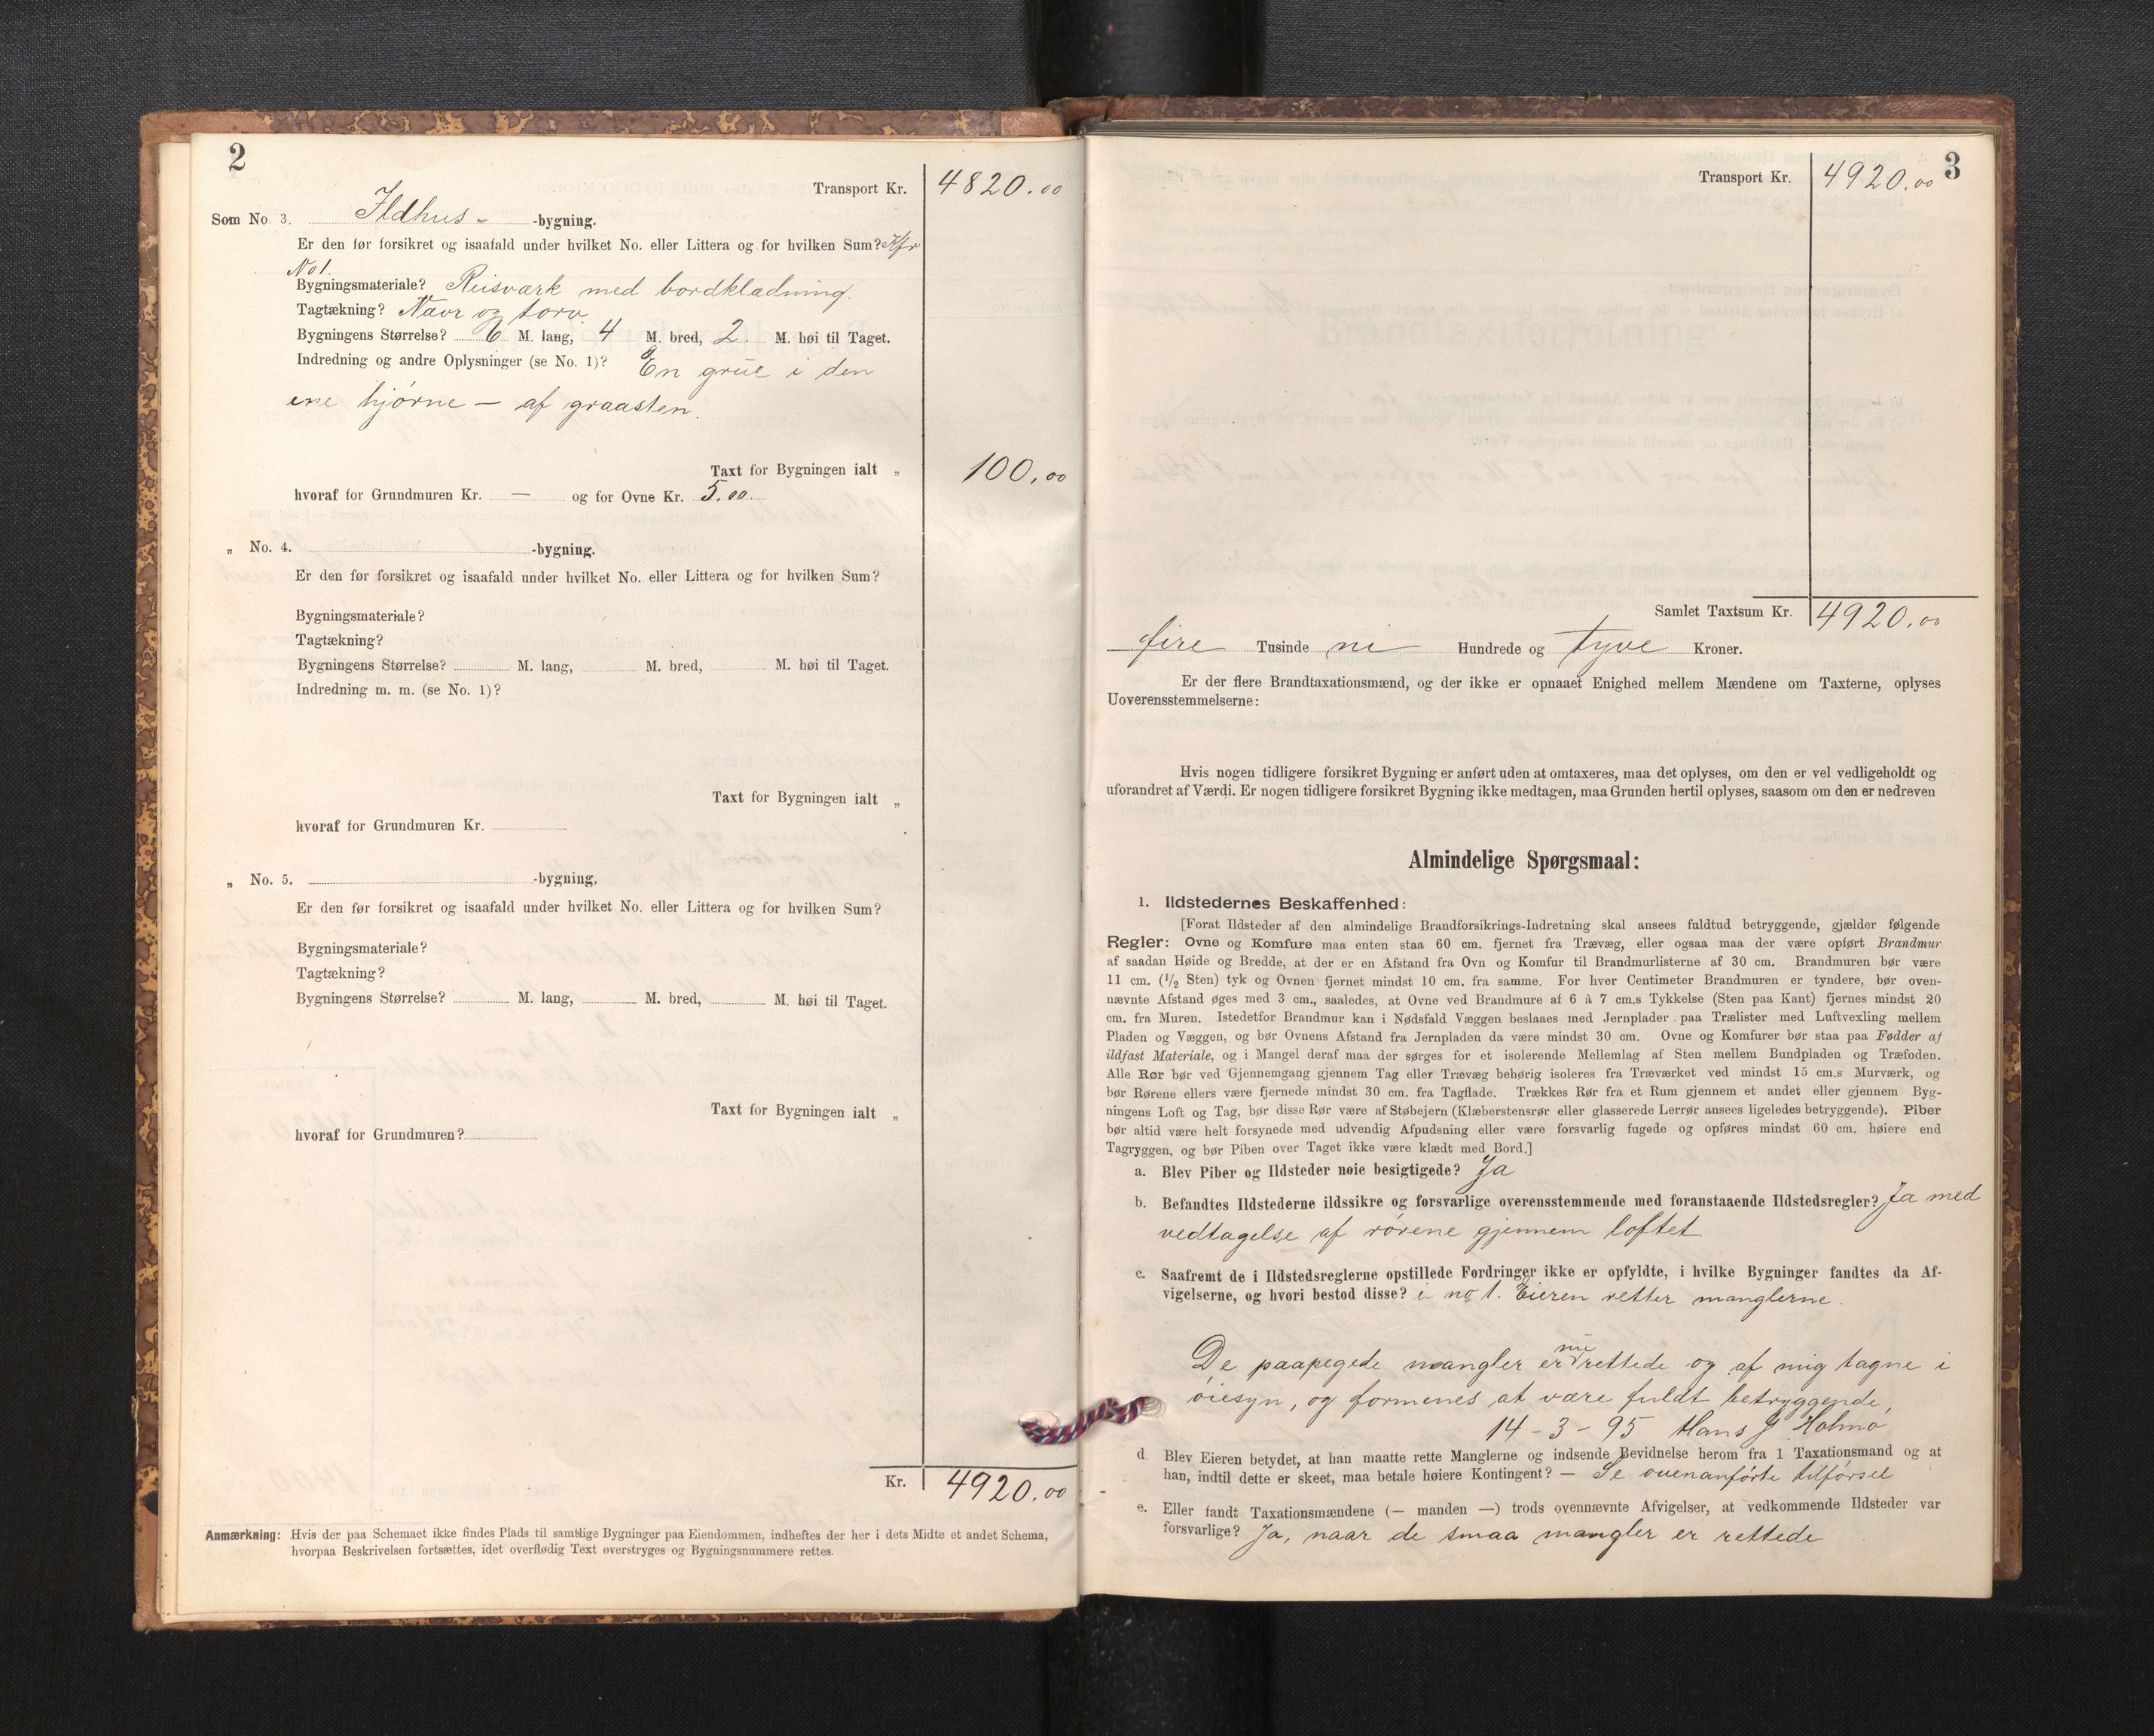 2
Transport Kr. 4820.00
Som No. 3. Ildhus- -bygning.
Er den før forsikret og isaafald under hvilket No. eller Littera og for hvilken Sum? Kfr
No 1.
Bygningsmateriale? Reisværk med bordklædning.
Tagtækning? Navr og torv.
Bygningens Størrelse? 6 M. lang, 4 M. bred, 2 M. høi til Taget.
Indredning og andre Oplysninger (se No. 1)? En grue i den
ene hjørne — af graasten.
Taxt for Bygningen ialt „ 100.00
hvoraf for Grundmuren Kr. — og for Ovne Kr. 5.00
„ No. 4. -bygning.
Er den før forsikret og isaafald under hvilket No. eller Littera og for hvilken Sum?
Bygningsmateriale?
Tagtækning?
Bygningens Størrelse? M. lang, M. bred, M. høi til Taget.
Indredning m. m. (se No. 1)?
Taxt for Bygningen ialt „
hvoraf for Grundmuren Kr.
„ No. 5. -bygning,
Er den før forsikret og isaafald under hvilket No. eller Littera og for hvilken Sum?
Bygningsmateriale?
Tagtækning?
Bygningens Størrelse? M. lang, M. bred, M. høi til Taget.
Taxt for Bygningen ialt „
hvoraf for Grundmuren?
Kr. 4920.00
Anmærkning: Hvis der paa Schemaet ikke findes Plads til samtlige Bygninger paa Eiendommen, indheftes der her i dets Midte et andet Schema,
hvorpaa Beskrivelsen fortsættes, idet overflødig Text overstryges og Bygningsnummere rettes.
3
Transport Kr. 4920.00
Samlet Taxtsum Kr. 4920.00
fire Tusinde ni Hundrede og tyve Kroner.
Er der flere Brandtaxationsmænd, og der ikke er opnaaet Enighed mellem Mændene om Taxterne, oplyses
Uoverensstemmelserne:
Hvis nogen tidligere forsikret Bygning er anført uden at omtaxeres, maa det oplyses, om den er vel vedligeholdt og
uforandret af Værdi. Er nogen tidligere forsikret Bygning ikke medtagen, maa Grunden hertil oplyses, saasom om den er nedreven
Almindelige Spørgsmaal:
1. Ildstedernes Beskaffenhed:
[Forat Ildsteder af den almindelige Brandforsikrings-Indretning skal ansees fuldtud betryggende, gjælder følgende
Regler: Ovne og Komfure maa enten staa 60 cm. fjernet fra Trævæg, eller ogsaa maa der være opført Brandmur
af saadan Høide og Bredde, at der er en Afstand fra Ovn og Komfur til Brandmurlisterne af 30 cm. Brandmuren bør være
11 cm. (1/2 Sten) tyk og Ovnen fjernet mindst 10 cm. fra samme. For hver Centimeter Brandmuren er tyndere, bør oven-
nævnte Afstand øges med 3 cm., saaledes, at Ovne ved Brandmure af 6 à 7 cm.s Tykkelse (Sten paa Kant) fjernes mindst 20
cm. fra Muren. Istedetfor Brandmur kan i Nødsfald Væggen beslaaes med Jernplader paa Trælister med Luftvexling mellem
Pladen og Væggen, og bør Ovnens Afstand fra Jernpladen da være mindst 30 cm. Ovne og Komfurer bør staa paa Fødder af
ildfast Materiale, og i Mangel deraf maa der sørges for et isolerende Mellemlag af Sten mellem Bundpladen og Træfoden.
Alle Rør bør ved Gjennemgang gjennem Tag eller Trævæg behørig isoleres fra Træværket ved mindst 15 cm.s Murværk, og
bør Rørene ellers være fjernede mindst 30 cm. fra Tagflade. Trækkes Rør fra et Rum gjennem et andet eller gjennem Byg-
ningens Loft og Tag, bør disse Rør være af Støbejern (Klæberstensrør eller glasserede Lerrør ansees ligeledes betryggende). Piber
bør altid være helt forsynede med udvendig Afpudsning eller være forsvarlig fugede og opføres mindst 60 cm. høiere end
Tagryggen, og bør Piben over Taget ikke være klædt med Bord.]
a. Blev Piber og Ildsteder nøie besigtigede? Ja
b. Befandtes Ildstederne ildssikre og forsvarlige overensstemmende med foranstaaende Ildstedsregler? Ja med
vedtagelse af rørene gjennem loftet
c. Saafremt de i Ildstedsreglerne opstillede Fordringer ikke er opfyldte, i hvilke Bygninger fandtes da Af-
vigelserne, og hvori bestod disse? i no 1. Eieren retter manglerne.
De paapegede mangler er nu rettede og af mig tagne i
øiesyn, og formenes at være fuldt betryggende,
14-3-95 Hans J Holmø
d. Blev Eieren betydet, at han maatte rette Manglerne og indsende Bevidnelse herom fra 1 Taxationsmand og at
han, indtil dette er skeet, maa betale høiere Kontingent? — Se ovenanførte tilførsel
e. Eller fandt Taxationsmændene (— manden —) trods ovennævnte Afvigelser, at vedkommende Ildsteder var
forsvarlige? Ja, naar de smaa mangler er rettede